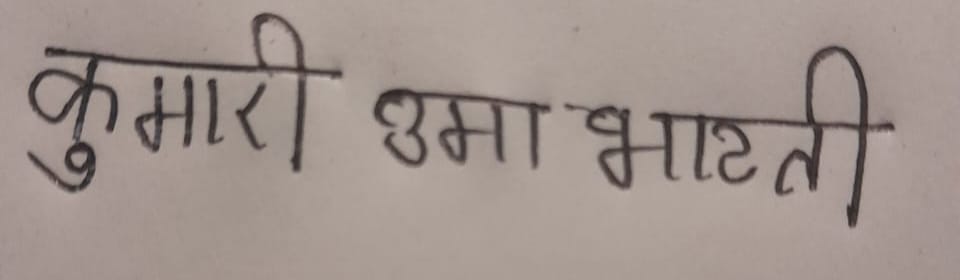 कुमारी उमा भारती